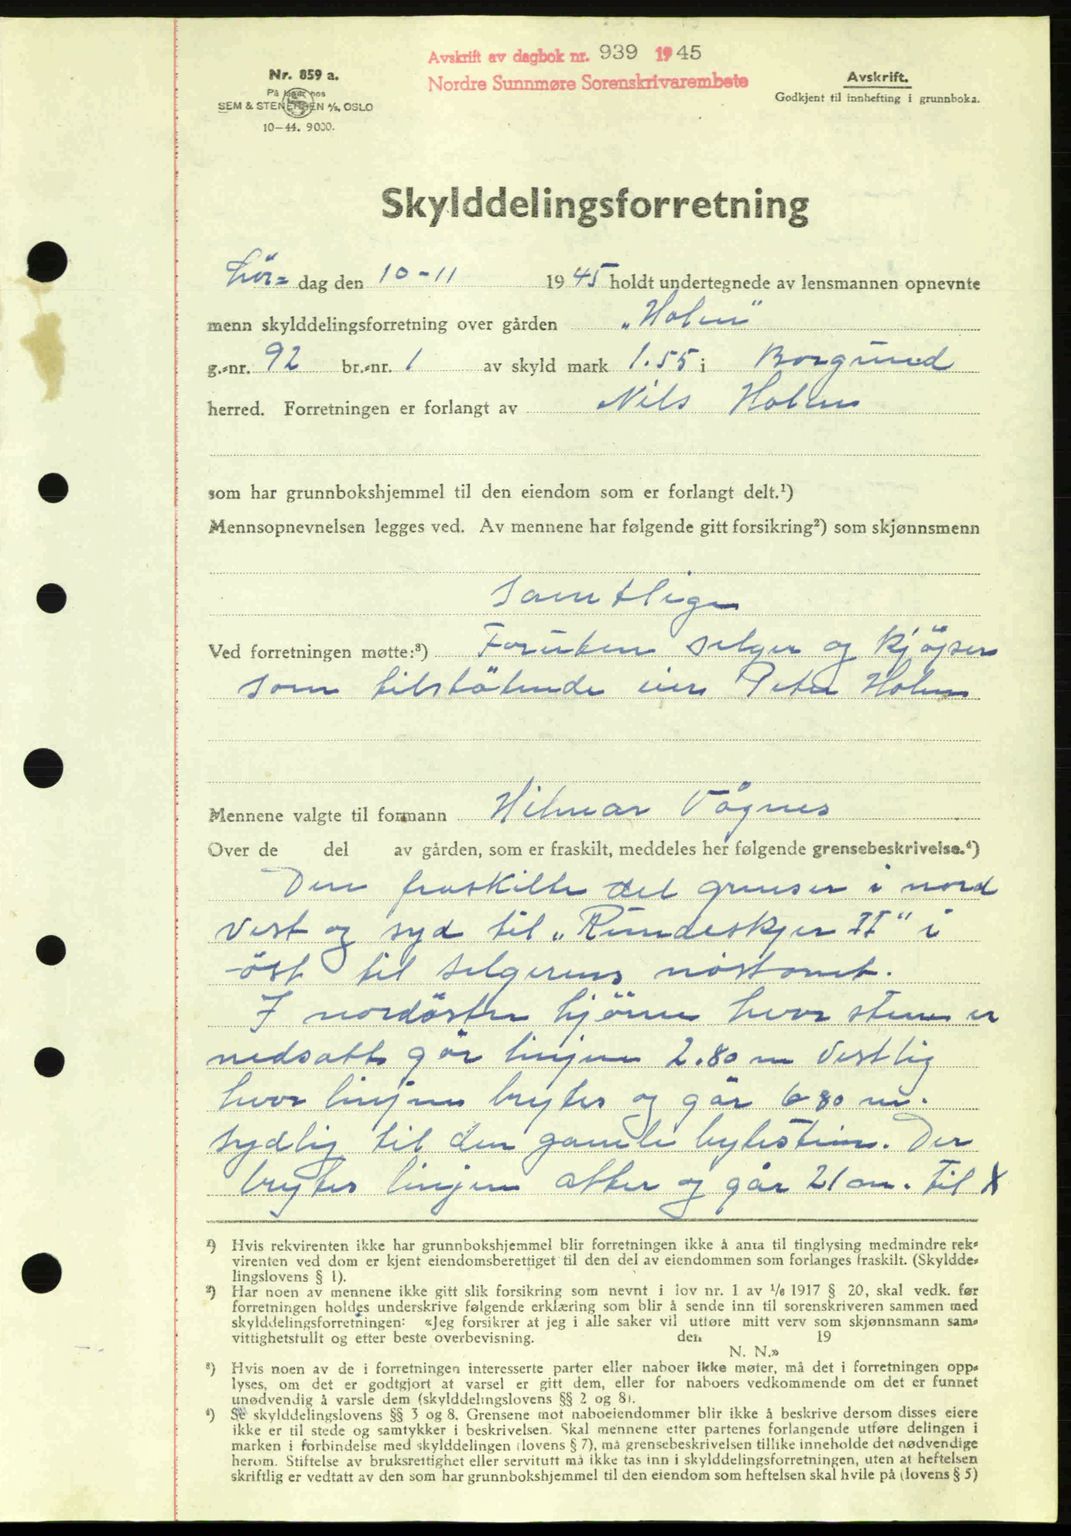 Avskrift av dagbok nr. 939 1945
Nordre Sunnmøre Sorenskrivarembete
Nr. 859 a.
På lager hos
SEM & STENERSEN A/S, OSLO
10-44. 9000.
Avskrift.
Godkjent til innhefting i grunnboka.
Skylddelingsforretning
Lör= dag den 10-11 1945 holdt undertegnede av lensmannen opnevnte
menn skylddelingsforretning over gården „Holen"
g.=nr. 92 br.=nr. 1 av skyld mark 1.55 i Borgund
herred. Forretningen er forlangt av Nils Holen
som har grunnbokshjemmel til den eiendom som er forlangt delt.¹)
Mennsopnevnelsen legges ved. Av mennene har følgende gitt forsikring²) som skjønnsmenn
samtlige
Ved forretningen møtte:³) Foruten selger og kjöper
som tilstötende eier Peter Holen
Mennene valgte til formann Hilmar Vågnes
Over de del av gården, som er fraskilt, meddeles her følgende grensebeskrivelse.⁴)
Den fraskilte del grenser i nord
vest og syd til „Rundeskjer II" i
öst til selgerens nöstomt.
I nordöstre hjörne hvor sten er
nedsatt går linjen 2.80 m vestlig
hvor linjen brytes og går 6 80 m.
sydlig til den gamle bytesten. Der
brytes linjen atter og går 21 m. til X
¹) Hvis rekvirenten ikke har grunnbokshjemmel blir forretningen ikke å anta til tinglysing medmindre rek=
virenten ved dom er kjent eiendomsberettiget til den del av eiendommen som forlanges fraskilt. (Skyldde=
lingslovens § 1).
²) Har noen av mennene ikke gitt slik forsikring som nevnt i lov nr. 1 av 1/6 1917 § 20, skal vedk. før
forretningen holdes underskrive følgende erklæring som blir å sende inn til sorenskriveren sammen med
skylddelingsforretningen: «Jeg forsikrer at jeg i alle saker vil utføre mitt verv som skjønnsmann sam=
vittighetsfullt og etter beste overbevisning. den 19
N. N.»
³) Hvis noen av de i forretningen interesserte parter eller naboer ikke møter, må det i forretningen opp=
lyses, om det er godtgjort at varsel er gitt dem, eller for naboers vedkommende om det er funnet
unødvendig å varsle dem (skylddelingslovens §§ 2 og 8).
⁴) Se skylddelingslovens §§ 3 og 8. Grensene mot naboeiendommer blir ikke å beskrive dersom disses eiere
ikke er til stede og samtykker i beskrivelsen. Skal mennene etter partenes forlangende utføre delingen i
marken i forbindelse med skylddelingen (lovens § 7), må grensebeskrivelsen tillike inneholde det nødvendige
herom. Stiftelse av bruksrettighet eller servitutt må ikke tas inn i skylddelingsforretningen, uten at heftelsen
skriftlig er vedtatt av den som har grunnbokshjemmel til den eiendom som heftelsen skal hvile på (lovens § 5)